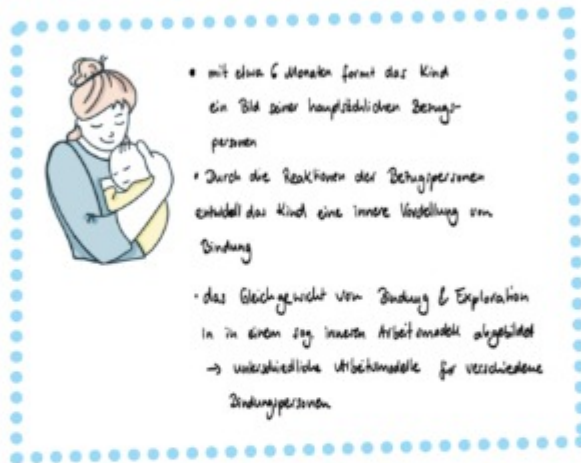 • mit etwa 6 Monaten formt das Kind
ein Bild seiner hauptsächlichen Bezugs-
personen
• Durch die Reaktionen der Bezugspersonen
entwickelt das Kind eine innere Vorstellung von
Bindung
• das Gleichgewicht von Bindung & Exploration
In in einem sog inneren Arbeitsmodell abgebildet
→ unterschiedliche Arbeitsmodelle für verschiedene
Bindungspersonen